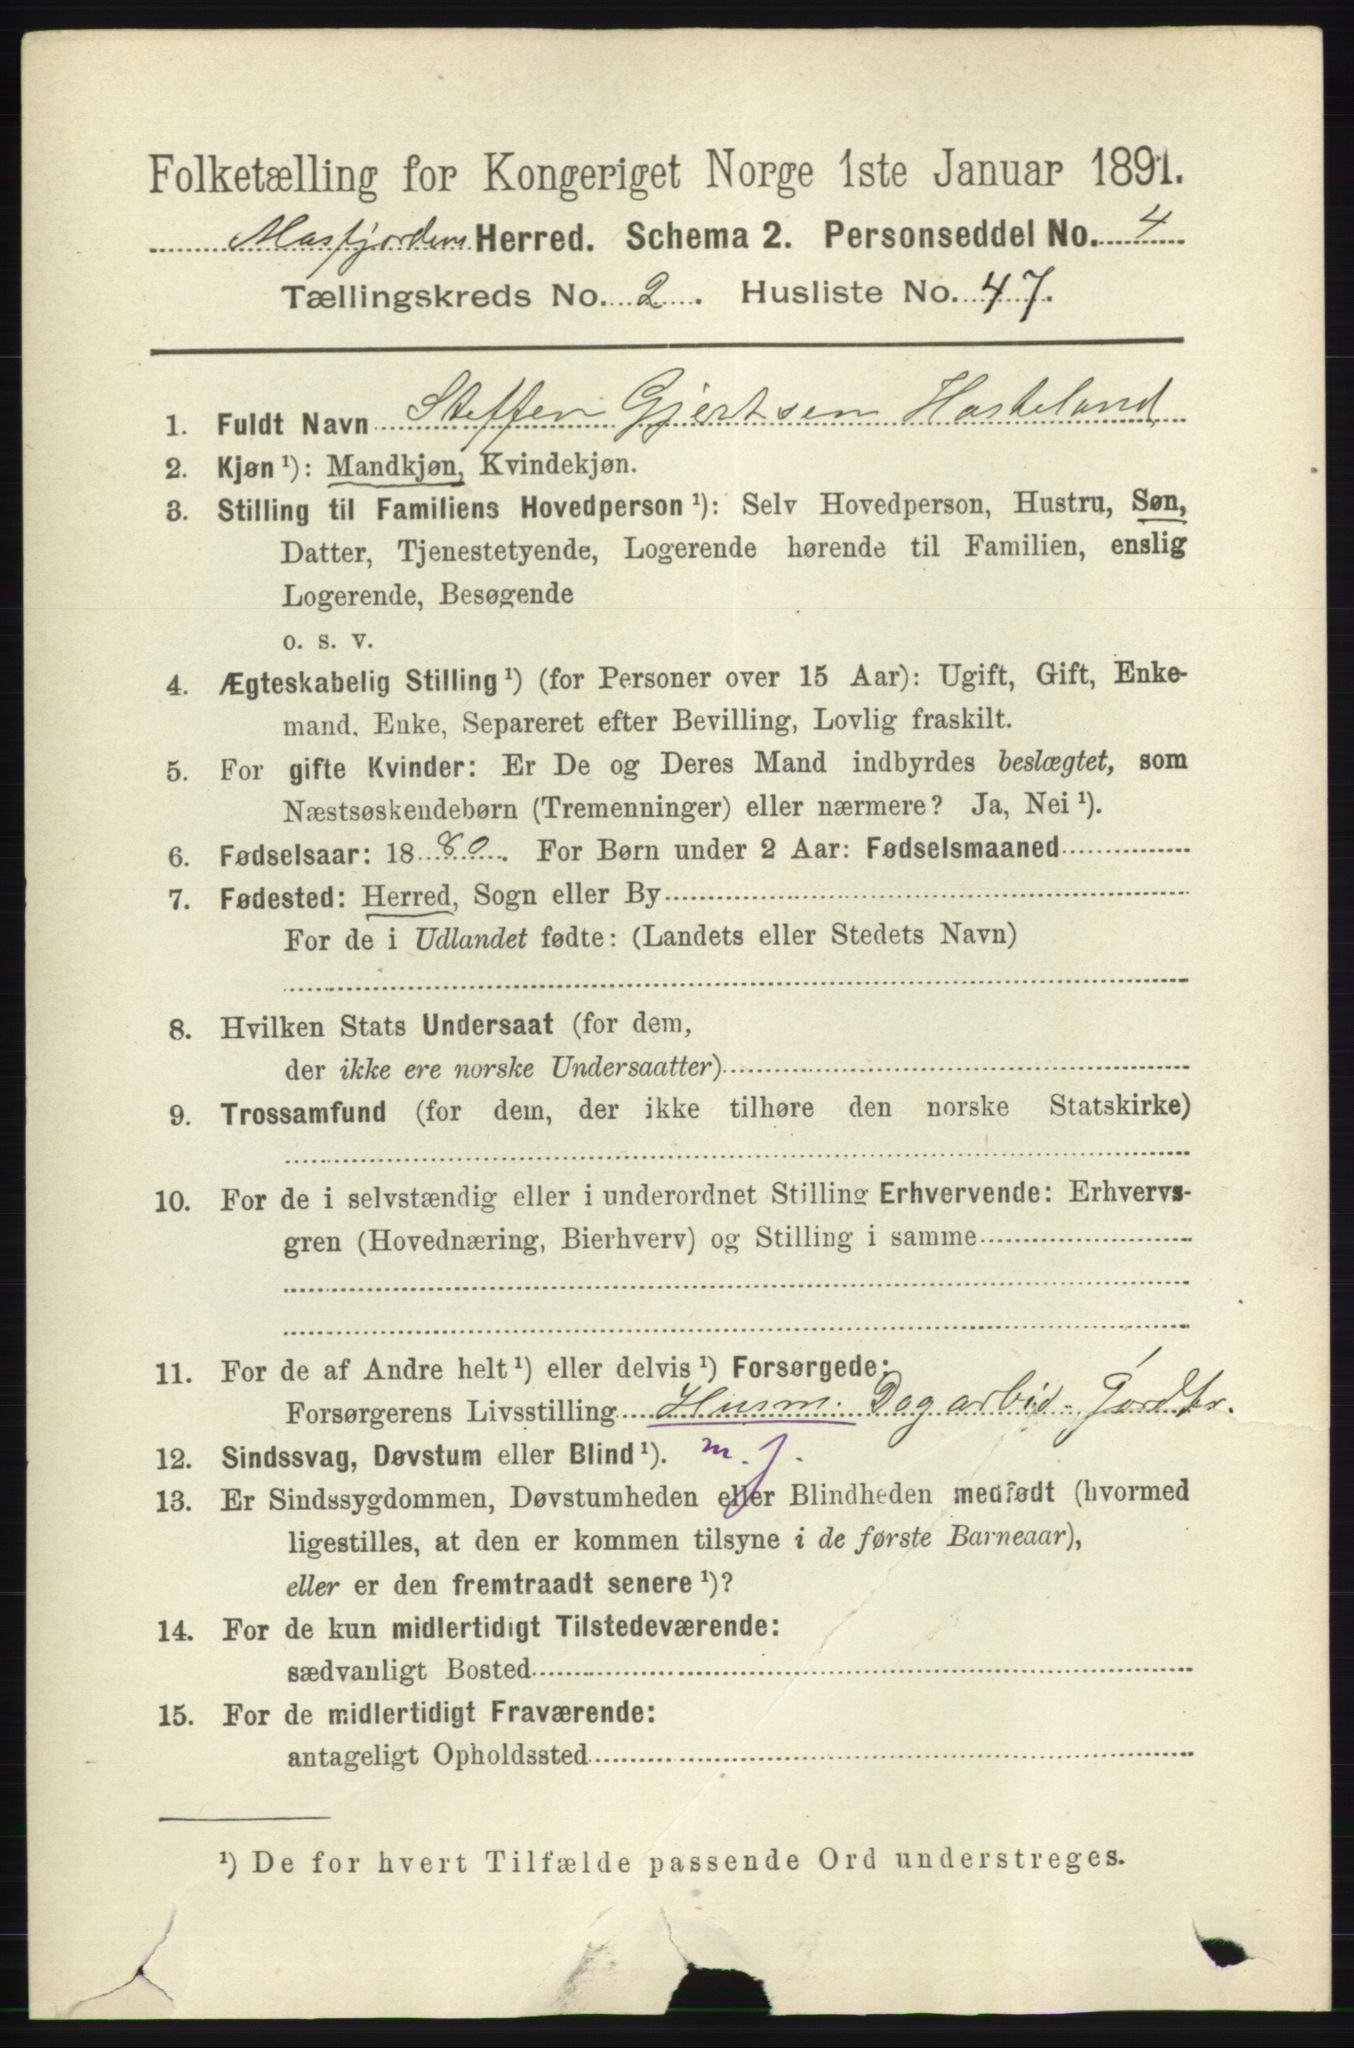 Folketælling for Kongeriget Norge 1ste Januar 1891.
Masfjordens Herred. Schema 2. Personseddel No. 4
Tællingskreds No. 2. Husliste No. 47.
1. Fuldt Navn Steffen Gjertsen Hasteland
2. Kjøn ¹): Mandkjøn, Kvindekjøn.
3. Stilling til Familiens Hovedperson ¹): Selv Hovedperson, Hustru, Søn,
Datter, Tjenestetyende, Logerende hørende til Familien, enslig
Logerende, Besøgende
o. s. v.
4. Ægteskabelig Stilling ¹) (for Personer over 15 Aar): Ugift, Gift, Enke-
mand, Enke, Separeret efter Bevilling, Lovlig fraskilt.
5. For gifte Kvinder: Er De og Deres Mand indbyrdes beslægtet, som
Næstsøskendebørn (Tremenninger) eller nærmere? Ja, Nei ¹).
6. Fødselsaar: 1880. For Børn under 2 Aar: Fødselsmaaned
7. Fødested: Herred, Sogn eller By
For de i Udlandet fødte: (Landets eller Stedets Navn)
8. Hvilken Stats Undersaat (for dem,
der ikke ere norske Undersaatter)
9. Trossamfund (for dem, der ikke tilhøre den norske Statskirke)
10. For de i selvstændig eller i underordnet Stilling Erhvervende: Erhvervs-
gren (Hovednæring, Bierhverv) og Stilling i samme
11. For de af Andre helt ¹) eller delvis ¹) Forsørgede:
Forsørgerens Livsstilling Husm. Dagarbid- Jordbr.
12. Sindssvag, Døvstum eller Blind ¹). m. j.
13. Er Sindssygdommen, Døvstumheden eller Blindheden medfødt (hvormed
ligestilles, at den er kommen tilsyne i de første Barneaar),
eller er den fremtraadt senere ¹)?
14. For de kun midlertidigt Tilstedeværende:
sædvanligt Bosted
15. For de midlertidigt Fraværende:
antageligt Opholdssted
¹) De for hvert Tilfælde passende Ord understreges.